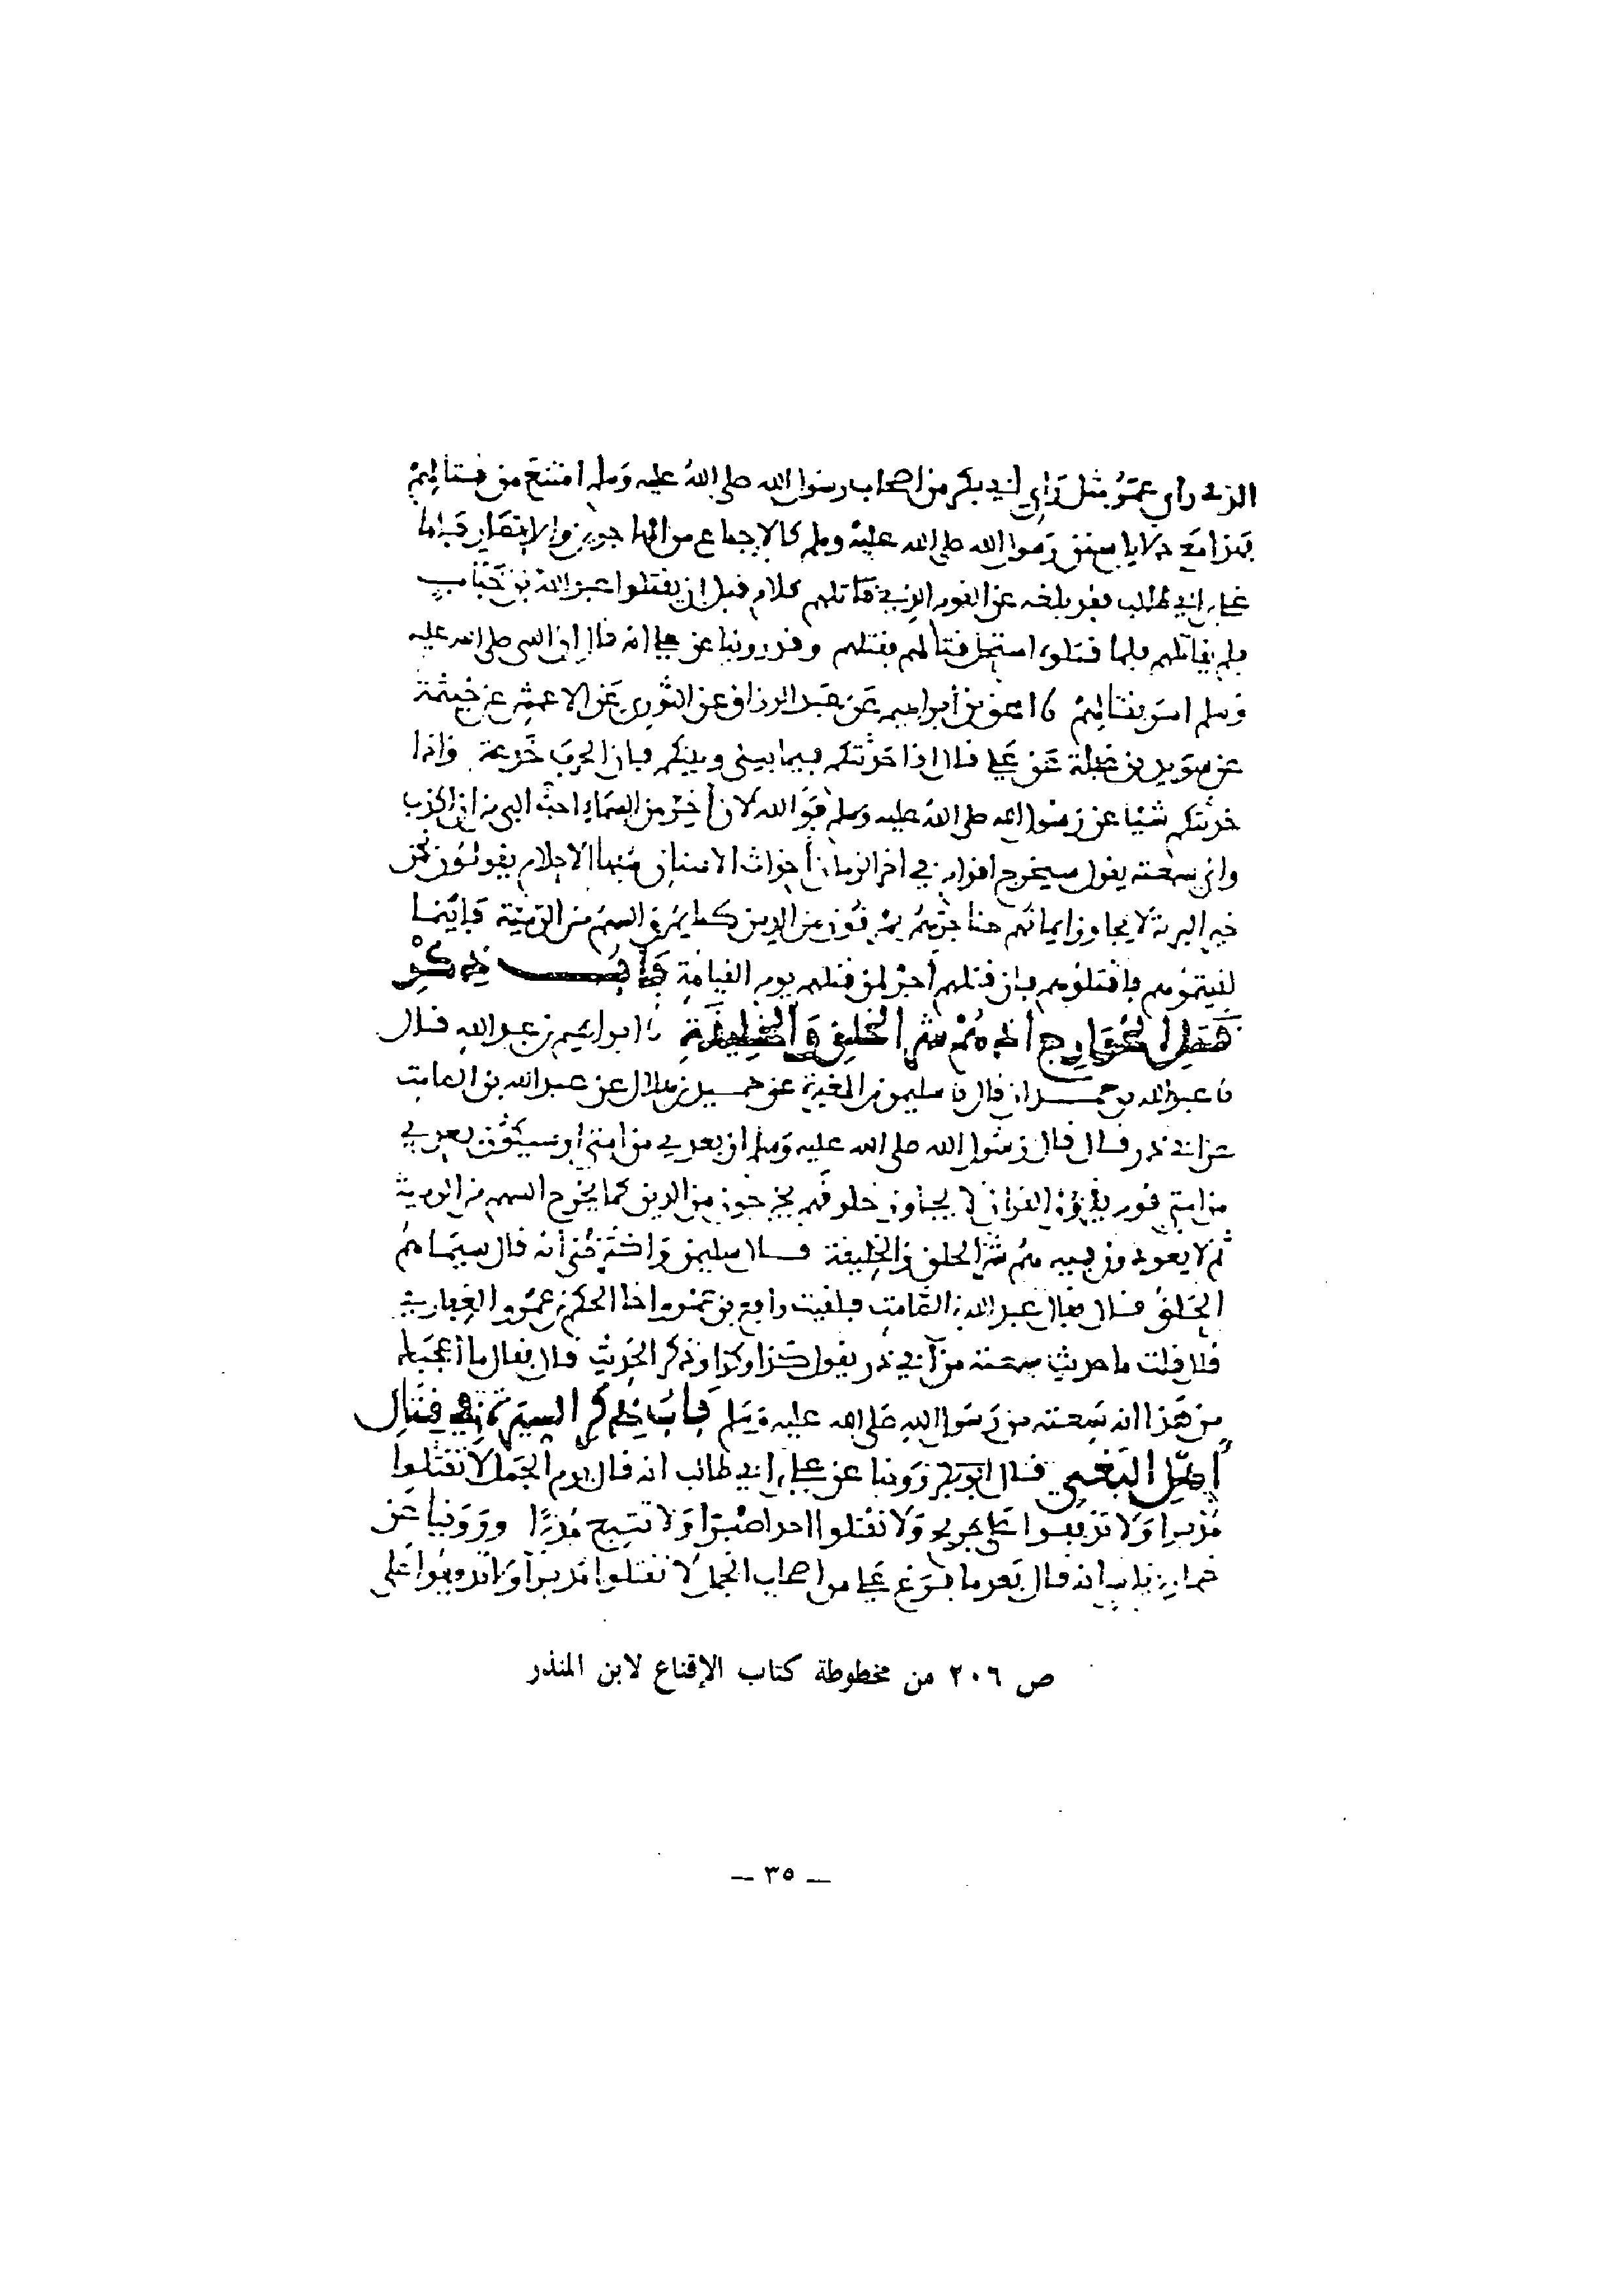 الذي رأى عمر مثل رأي أبي بكر من أصحاب رسول الله صلى الله عليه وسلم امتنع من قتالهم
فهذا مع دلايل سنن رسول الله صلى الله عليه وسلم كالإجماع من المهاجرين والانصار فاما
علي بن ابي طالب فقد بلغه عن القوم الذين قاتلهم كلام قبل ان يقتلوا عبد الله بن خباب
فلم يقاتلهم فلما قتلوه استحل قتالهم فقتلهم وقد روينا عن علي انه قال إن النبي صلى الله عليه
وسلم امر بقتالهم نا اسحق بن أبراهيم عن عبد الرزاق عن الثوري عن الاعمش عن خيثمة
عن سويد بن غفلة عن علي قال اذا حدثتكم فيما بيني وبينكم فان الحرب خدعة واذا
حدثتكم شيا عن رسول الله صلى الله عليه وسلم فوالله لان أخر من السماء احب الي من ان اكذب
واني سمعته يقول سيخرج اقوام في اخر الزمان أحداث الاسنان سفهاء الاحلام يقولون من
خير البرية لا يجاوز ايمانهم حناجرهم يمرقون من الدين كما يمرق السهم من الرمية فاينما
لقيتموهم فاقتلوهم فان قتلهم أجر لمن قتلهم يوم القيامة باب ذكر
قتل الخوارج اذ هم شر الخلق والخليقة نا ابراهيم بن عبد الله قال
نا عبد الله بن حمران قال نا سليمن بن المغيرة عن حميد بن هلال عن عبد الله بن الصامت
عن ابي ذر قال قال رسول الله صلى الله عليه وسلم ان بعدي من امتي او سيكون بعدي
من امتي قوم يقرؤن القران لا يجاوز حلوقهم يخرجون من الدين كما يخرج السهم من الرمية
ثم لا يعودون فيه هم شر الخلق والخليقة قال سليمن واكثر ظني أنه قال سيماهم
الحلق قال فقال عبد الله بن الصامت فلقيت رافع بن عمرو اخا الحكم بن عمرو الغفاري
قال قلت ما حديث سمعته من أبي ذر يقول كذا وكذا وذكر الحديث قال فقال ما أعجبك
من هذا انه سمعته من رسول الله صلى الله عليه وسلم باب ذكر السيرة في قتال
أهل البغي قال ابو بكر روينا عن علي بن ابي طالب انه قال يوم الجمل لا تقتلوا
مدبرا ولا تذففوا على جريح ولا تقتلوا احدا صبرا ولا تتبع مدبرا وروينا عن
عمار بن ياسر انه قال بعد ما فرغ علي من اصحاب الجمل لا تقتلوا مدبرا ولا تذففوا على
ص ٢٠٦ من مخطوطة كتاب الإقناع لابن المنذر
— ٣٥ —